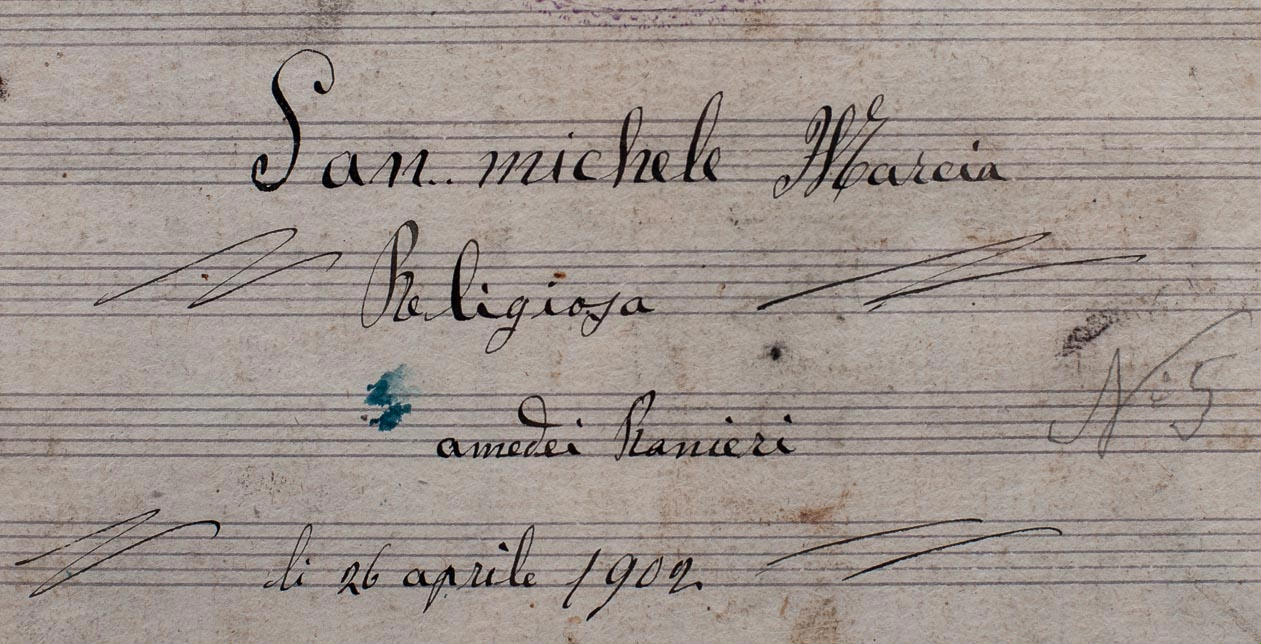 San michele Marcia
Religiosa
N. 5
amedei Ranieri
li 26 aprile 1902.